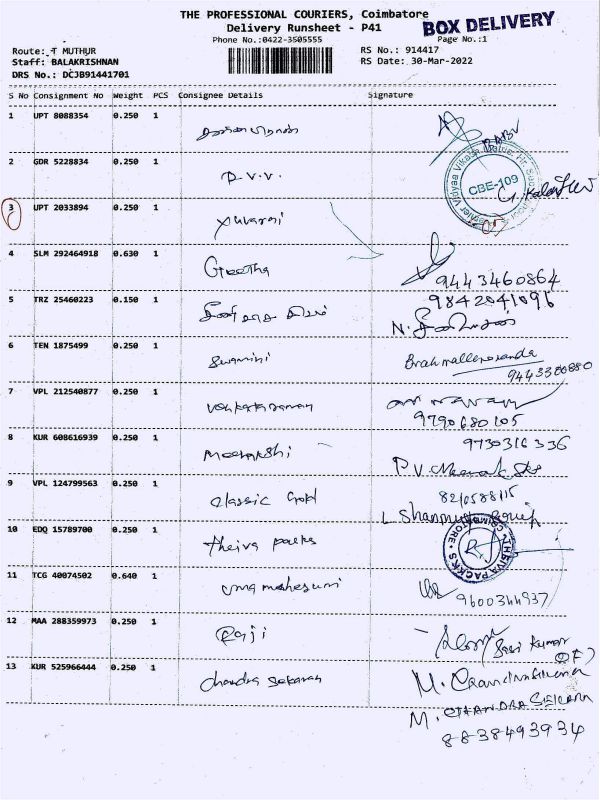 THE PROFESSIONAL COURIERS, Coimbatore
BOX DELIVERY
Delivery Runsheet - P41
Phone No.:0422-3505555
Page No.:1
Route: T MUTHUR
RS No.: 914417
Staff: BALAKRISHNAN
RS Date: 30-Mar-2022
DRS No.: DCJB91441701
S No Consignment No Weight PCS Consignee Details Signature
1 UPT 8088354 0.250 1
BABU
2 GDR 5228834 0.250 1
P.V.V.
CBE-109
3 UPT 2033894 0.250 1
Yuvaraj
4 SLM 292464918 0.630 1
Geetha
9443460864
5 TRZ 25460223 0.150 1
9842041096
N.
6 TEN 1875499 0.250 1
Swamini
9443380880
7 VPL 212540877 0.250 1
Venkataraman
9790680105
8 KUR 608616939 0.250 1
9730316336
Meenakshi
P.V.
9 VPL 124799563 0.250 1
Classic Gold
8210588115
L Shanmuga
10 EDQ 15789700 0.250 1
theiva packs
THEIVA PACKS COIMBATORE
11 TCG 40074502 0.640 1
uma maheswari
9600344937
12 MAA 288359973 0.250 1
Raji
Sasi Kumar
13 KUR 525966444 0.250 1
Chandra Sekaran
M. Chandrasekaran
M. CHANDRA SEKARA
8838493934